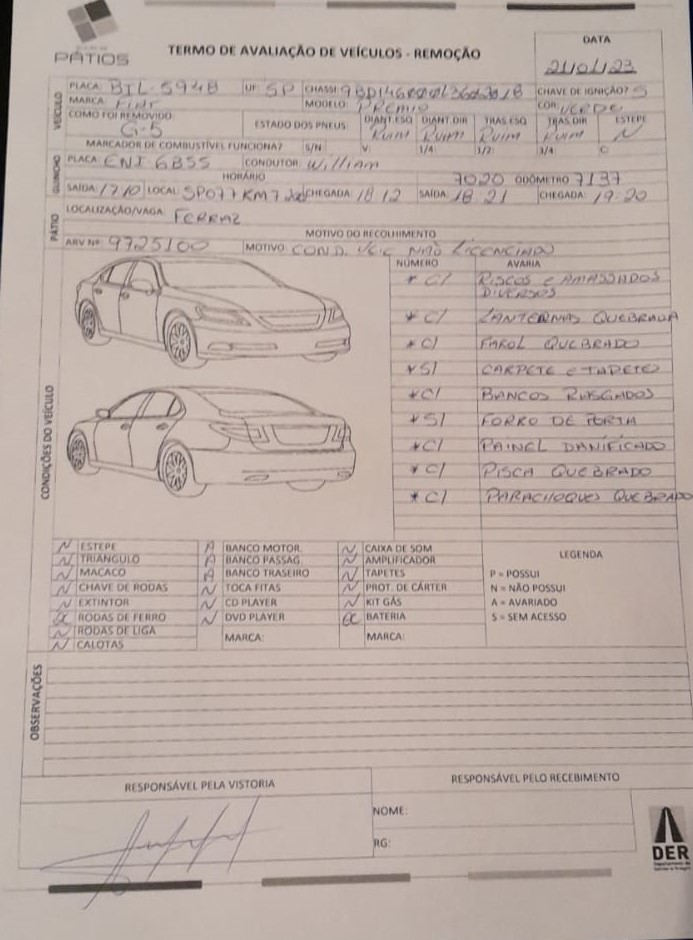 PÁTIOS
TERMO DE AVALIAÇÃO DE VEÍCULOS - REMOÇÃO
DATA
21/01/23
VEÍCULO
PLACA: BIL-5948 UF: SP CHASSI: CHAVE DE IGNIÇÃO? S
MARCA: FIAT MODELO: PREMIO COR: VERDE
COMO FOI REMOVIDO G-5 ESTADO DOS PNEUS: DIANT.ESQ RUIM DIANT.DIR RUIM TRAS.ESQ RUIM TRAS.DIR RUIM ESTEPE N
MARCADOR DE COMBUSTÍVEL FUNCIONA? S/N V: 1/4: 1/2: 3/4: C:
GUINCHO
PLACA: ENI 6B55 CONDUTOR: William
HORÁRIO 7020 ODÔMETRO 7137
SAÍDA: 17 10 LOCAL: SP077 KM7 CHEGADA: 18 12 SAÍDA: 18:21 CHEGADA: 19:20
PÁTIO
LOCALIZAÇÃO/VAGA: FERRAZ
MOTIVO DO RECOLHIMENTO
ARV Nº: 9725100 MOTIVO: COND. VEIC NÃO LICENCIADO
CONDIÇÕES DO VEÍCULO
NÚMERO AVARIA
* C/ RISCOS e AMASSADOS
DIVERSOS
* C/ LANTERNAS QUEBRADA
* C/ FAROL QUEBRADO
* S/ CARPETE e TAPETES
* C/ BANCOS RASGADOS
* S/ FORRO DE PORTA
* C/ PAINEL DANIFICADO
* C/ PISCA QUEBRADO
* C/ PARACHOQUES QUEBRADO
N ESTEPE A BANCO MOTOR. N CAIXA DE SOM
N TRIÂNGULO A BANCO PASSAG. N AMPLIFICADOR
N MACACO A BANCO TRASEIRO N TAPETES
N CHAVE DE RODAS N TOCA FITAS N PROT. DE CÁRTER
N EXTINTOR N CD PLAYER N KIT GÁS
RODAS DE FERRO N DVD PLAYER BATERIA
N RODAS DE LIGA MARCA: MARCA:
N CALOTAS
LEGENDA
P = POSSUI
N = NÃO POSSUI
A = AVARIADO
S = SEM ACESSO
OBSERVAÇÕES
RESPONSÁVEL PELA VISTORIA
RESPONSÁVEL PELO RECEBIMENTO
NOME:
RG:
DER